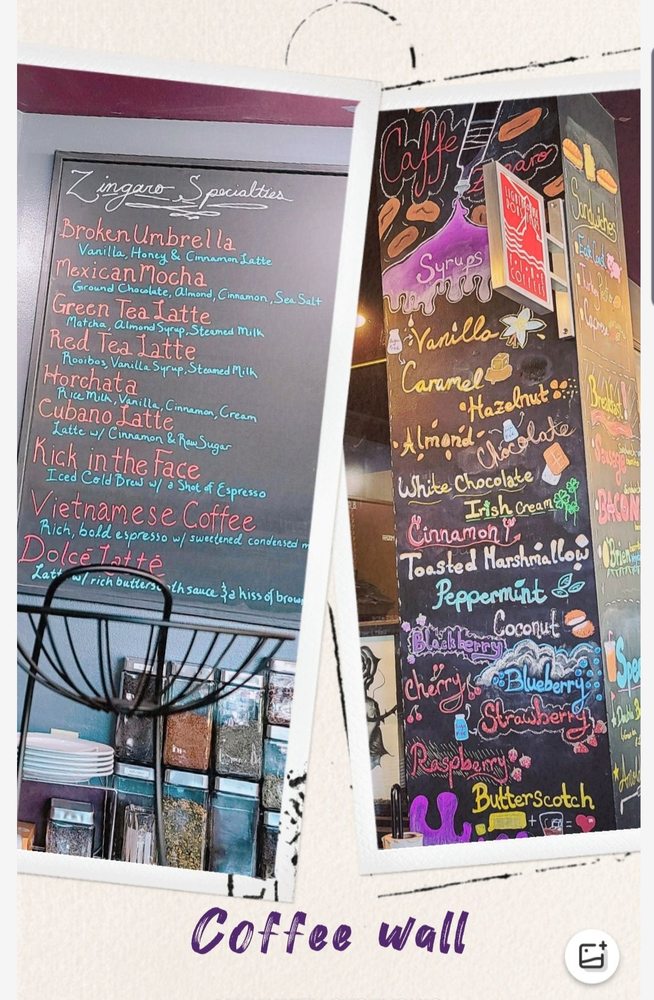 Zingaro Specialties
Broken Umbrella
Vanilla, Honey & Cinnamon Latte
Mexican Mocha
Ground Chocolate, Almond, Cinnamon, Sea Salt
Green Tea Latte
Matcha, Almond Syrup, Steamed Milk
Red Tea Latte
Rooibos, Vanilla Syrup, Steamed Milk
Horchata
Rice Milk, Vanilla, Cinnamon, Cream
Cubano Latte
Latte w/ Cinnamon & Raw Sugar
Kick in the Face
Iced Cold Brew w/ a Shot of Espresso
Vietnamese Coffee
Rich, bold espresso w/ sweetened condensed m
Dolcé Latté
w/ rich sauce & a hiss of brow
Caffe
Zingaro
Syrups
Vanilla
Caramel
Hazelnut
Almond
Chocolate
White Chocolate
Irish Cream
Cinnamon
Toasted Marshmallow
Peppermint
Coconut
Blackberry
Blueberry
Cherry
Strawberry
Raspberry
Butterscotch
+ =
Sandwiches
Breakfast
Sausage
BACON
Brie
Spec
Coffee wall